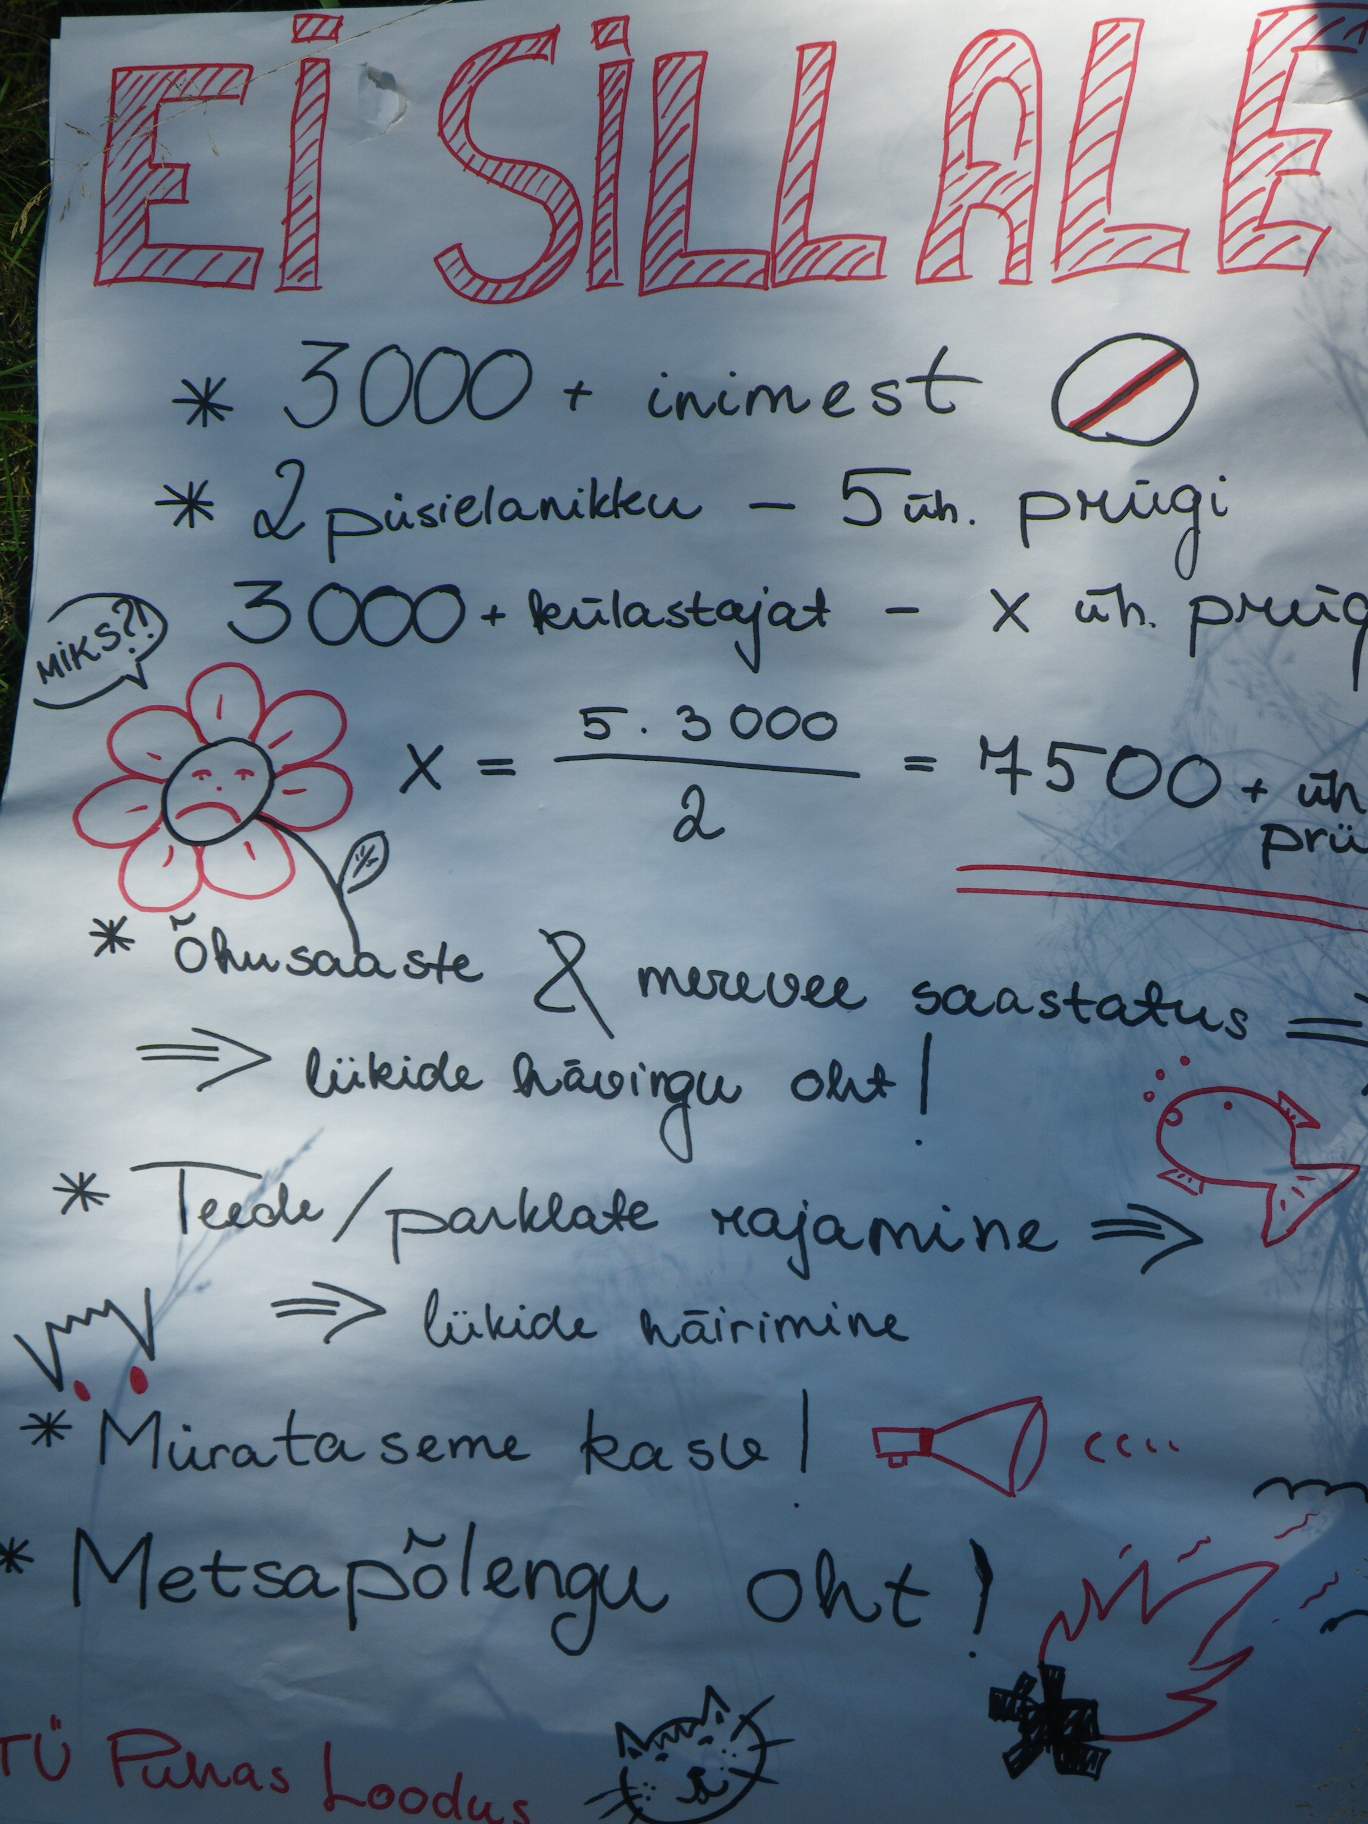 EI SILLALE
* 3000 + inimest
* 2 püsielanikku - 5 üh. prügi
3000 + külastajat - x üh. prüg
MIKS?!
x = 5 · 3000 / 2 = 7500 + üh
prü
* Õhusaaste & merevee saastatus ⇒
⇒ liikide hävingu oht!
* Teede/parklate rajamine ⇒
⇒ liikide häirimine
* Mürataseme kasv!
* Metsapõlengu oht!
TÜ Puhas Loodus